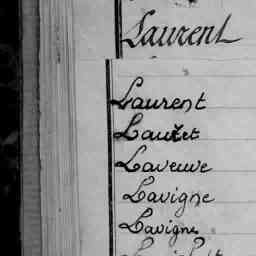 Laurent
Laurent
Lautet
Laveuve
Lavigne
Lavigne